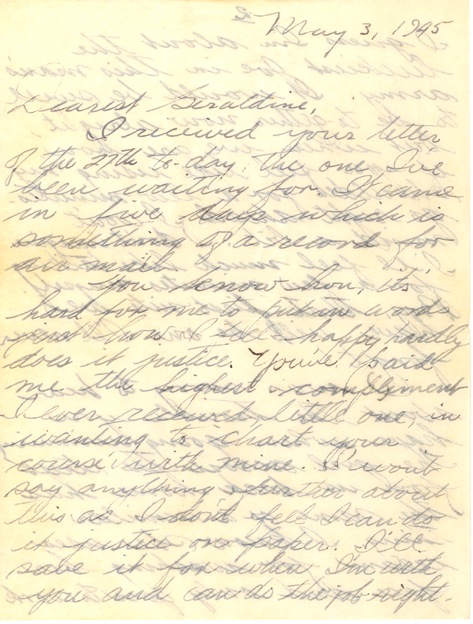 May 3, 1945
Dearest Geraldine,
I received your letter
of the 27th to-day, the one I've
been waiting for. It came
in five days which is
something of a record for
air mail.
You know hon, it's
hard for me to put in words
just how I feel, happy hardly
does it justice. You've paid
me the highest compliment
I ever received little one, in
wanting to "chart your
course" with mine. I won't
say anything further about
this as I don't feel I can do
it justice on paper. I'll
save it for when I'm with
you and can do the job right.